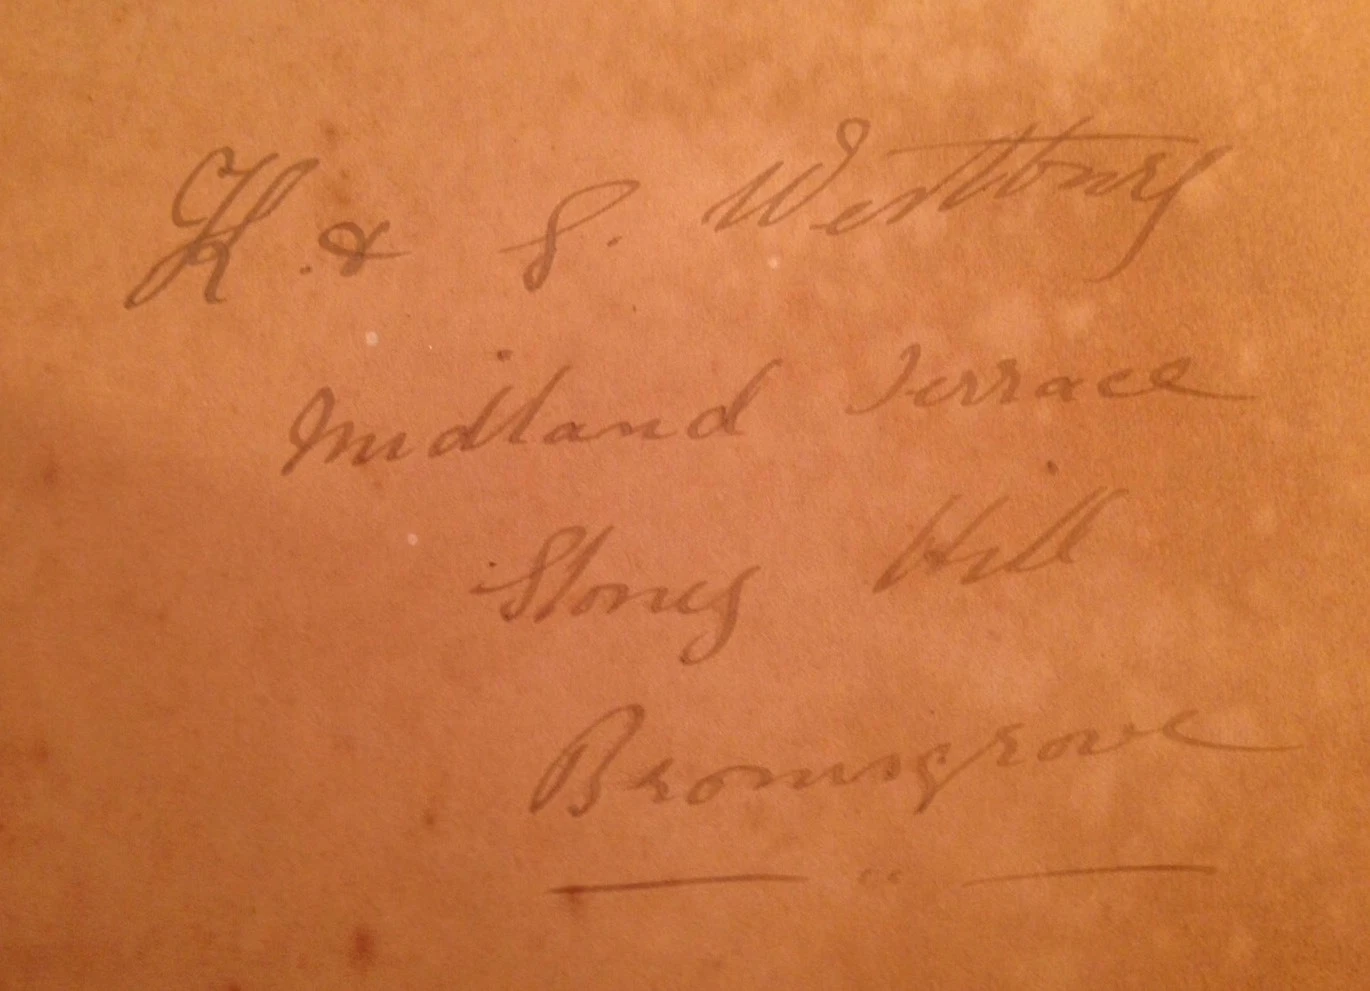 H. & S. Westbury
Midland Terrace
Stoney Hill
Bromsgrove